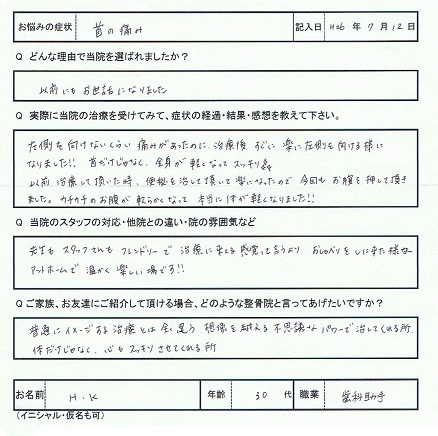 お悩みの症状 首の痛み 記入日 H26 年 7 月 12 日
Q どんな理由で当院を選ばれましたか？
以前にもお世話になりました
Q 実際に当院の治療を受けてみて、症状の経過・結果・感想を教えて下さい。
左側を向けないくらい痛みがあったのに、治療後すぐに楽に左側を向ける様に
なりました!! 首だけじゃなく、全身が軽くなってスッキリ
以前治療して頂いた時、便秘を治して頂いて楽になったので今回もお腹を押して頂き
ました。カチカチのお腹が軟らかくなって本当に体が軽くなりました!!
Q 当院のスタッフの対応・他院との違い・院の雰囲気など
先生もスタッフさんもフレンドリーで治療に来る感覚って言うより、おしゃべりをしに来た様な
アットホームで温かく楽しい場です!!
Q ご家族、お友達にご紹介して頂ける場合、どのような整骨院と言ってあげたいですか？
普通にイメージする治療とは全く違う 想像を越える不思議なパワーで治してくれる所
体だけじゃなく、心もスッキリさせてくれる所
お名前 H.K 年齢 30 代 職業 歯科助手
（イニシャル・仮名も可）